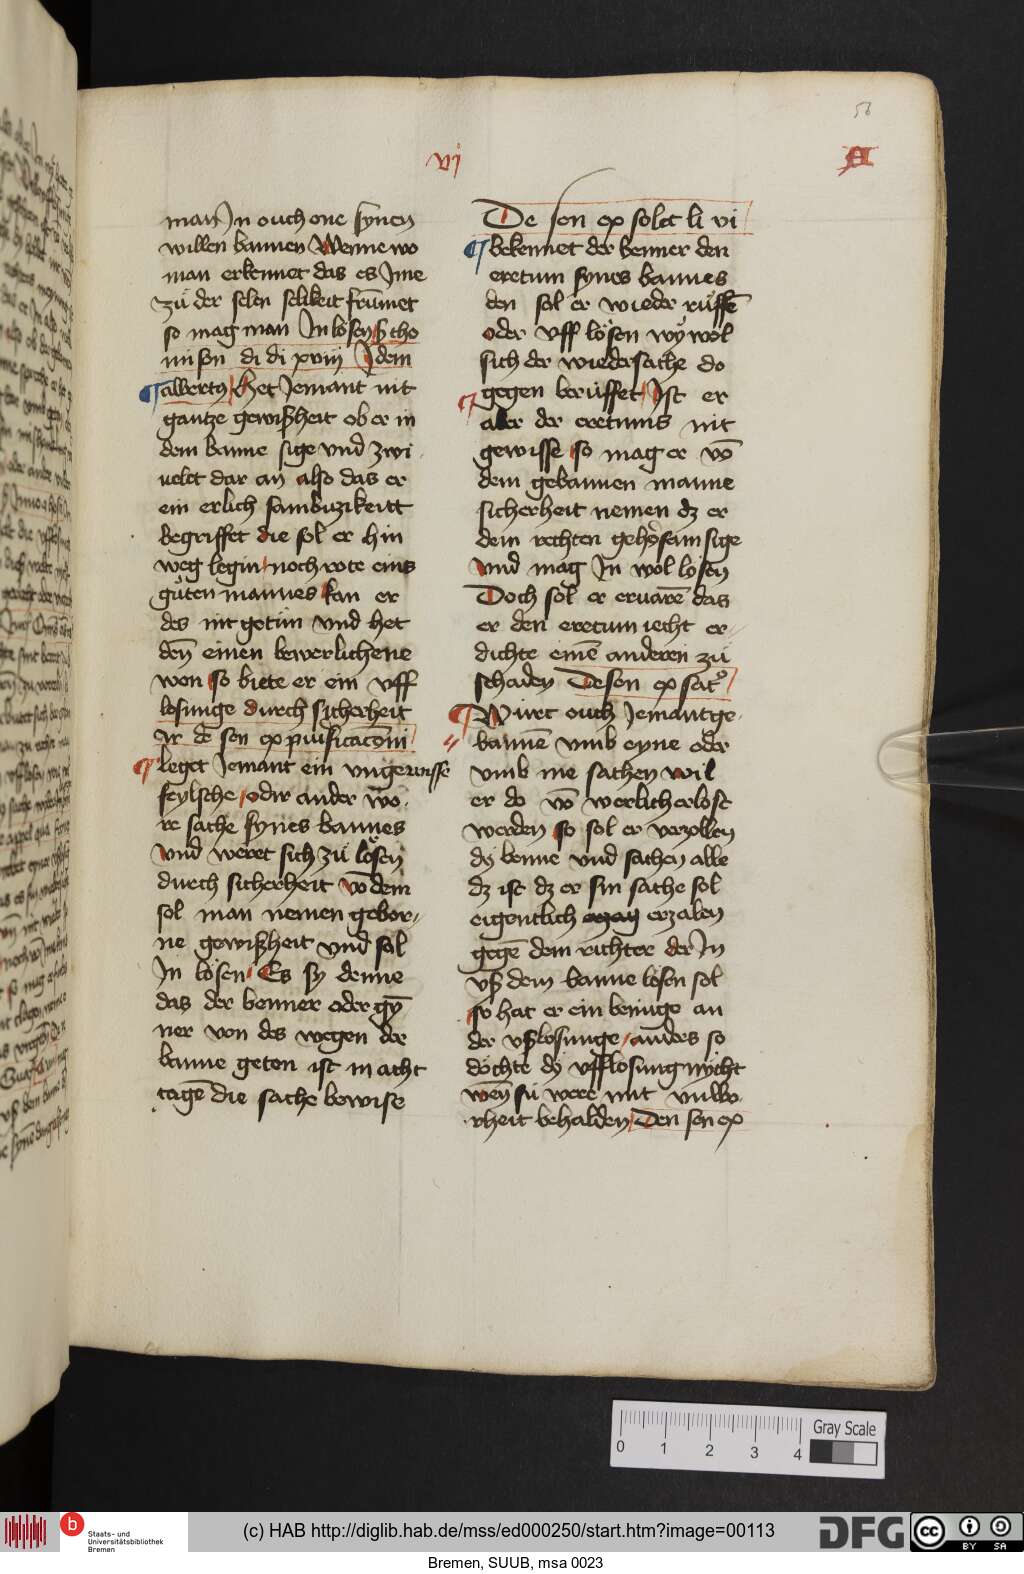 56
vi
A
man In ouch one synen
willen bannen Wenne wo
man erkennet das es Ime
zu der selen selikeit frūmet
so mag man In losen S tho
mi son di di xviij Idem
albertꝯ Het Jemant nit
gantze gewißheit ob er in
dem banne sige vnd zwi
uelet dar an also das er
ein erlich sambuzikeitt
begriffet die sol er hin
weg legin noch rote eins
guten mannes kan er
des nit getun vnd het
den einen bewerlichene
won so biete er ein vff
losunge durch sicherheit
Ar de sen ex
leget Jemant ein vngewisse
feylsche odir ander wo
re sache synes bannes
vnd weret sich zu lösen
durch sicherheit vō dem
sol man nemen gebor
ne gewißheit vnd sol
In lösen Es sy denne
das der benner oder
ner von des wegen der
banne geten ist in acht
tagē die sache bewise
De sen ex solet li vi
bekennet der benner den
eretum synes bannes
den sol er wieder ruffē
oder vff lösen wywol
sich der wiedersache do
gegen beruffet Ist er
aber der eretums nit
gewisse so mag er vō
dem gebannen manne
sicherheit nemen dz er
dem rechten gehorsam sige
vnd mag In wol losen
Doch sol er ervarē das
er den eretum iecht er
dichte einē anderen zu
schaden De sen ex sacꝰ
Wirt ouch Jemant ge
bannē vmb eyne oder
vmb me sachen wil
er do vō werlich erlost
werden so sol er verzollen
dy benne vnd sachen alle
dz ist dz er sin sache sol
eigentlich erzalen
gegē dem richter der In
vß dem banne losen sol
so hat er ein benuge an
der vßlosunge anders so
döchte dy vfflosung nycht
wen su were mit vnwo
rheit behalden Den sen ex
0 1 2 3 4
Gray Scale
b
Staats- und
Universitätsbibliothek
Bremen
(c) HAB http://diglib.hab.de/mss/ed000250/start.htm?image=00113
DFG
cc
BY SA
Bremen, SUUB, msa 0023